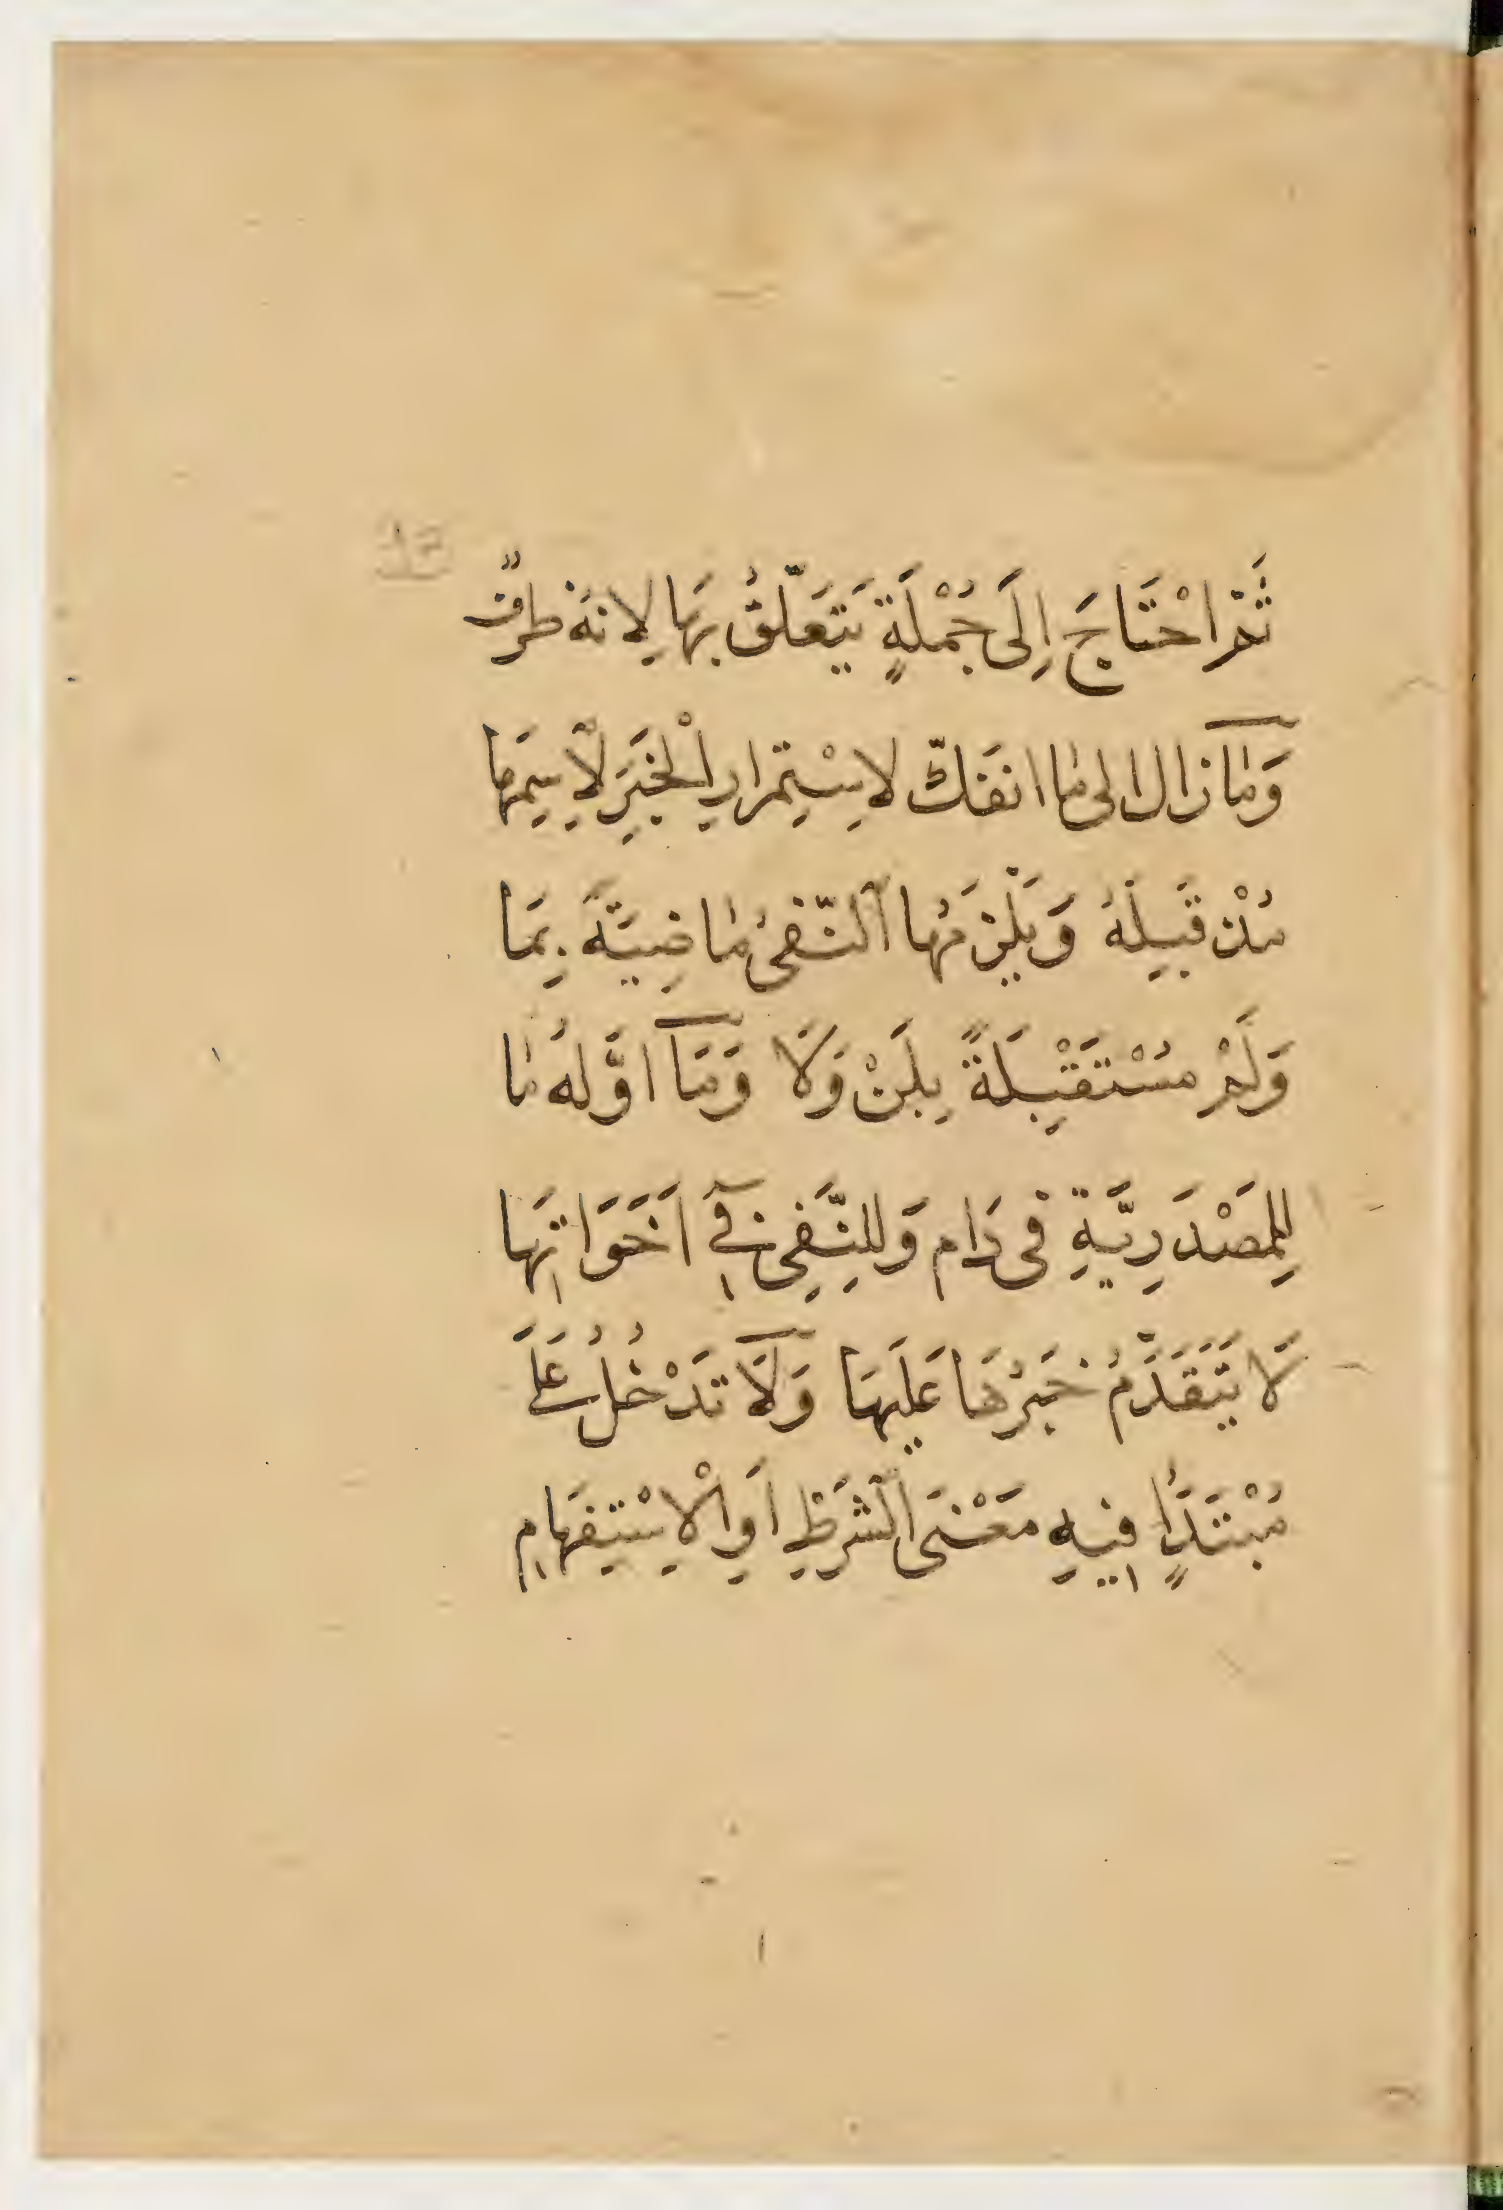 ثَمَّ احْتَاجَ اِلَى جُمْلَةٍ يَتَعَلَّقُ بِهَا لِانهُ ظرفٌ
وَمَازال الى ما انفَكّ لاِسْتِمرارِ الْخَبَرِ لِاْسِمِهَا
مُذْ قَبِلَهُ وَيَلْزَمُها اَلنّفىُ مَاضِيَّةً بِمَا
وَلَمْ مُسْتَقْبِلَةً بِلَنْ وَلَا وَمَآ اوَّلهُ مَا
لِلمَصْدَرِيَّةِ فى دَام وَلِلنَّفِى فِىٓ اَخَوَاتِهَا
لَا يَتَقَدَّمُ خَبَرُهَا عَلَيهَا وَلَآ تَدْخُلُ عَلَى
مُبْتَدَاءٍ فِيهِ مَعْنَى اَلشَرَطِ اَوِ الْاِسْتِفهَامِ